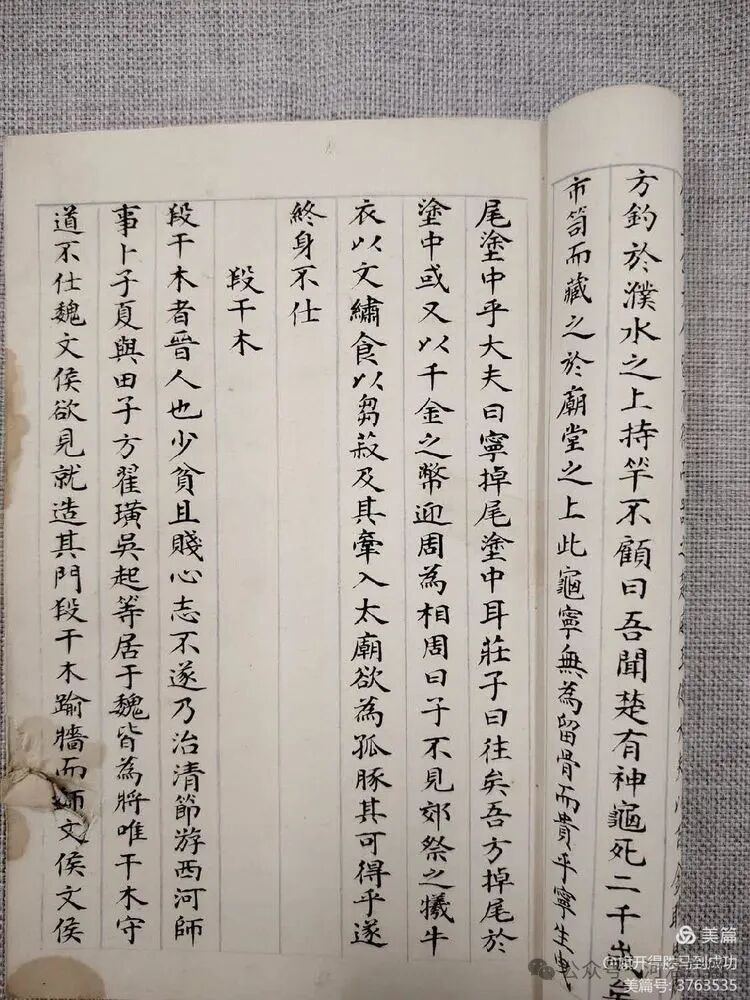 方釣於濮水之上持竿不顧曰吾聞楚有神龜死二千
市笥而藏之於廟堂之上此龜寧無為留骨而貴乎寧生曳
尾塗中乎大夫曰寧掉尾塗中耳莊子曰往矣吾方掉尾於
塗中或又以千金之幣迎周為相周曰子不見郊祭之犧牛
衣以文繡食以芻菽及其牽入太廟欲為孤豚其可得乎遂
終身不仕
段干木
段干木者晉人也少貧且賤心志不遂乃治清節游西河師
事卜子夏與田子方翟璜吳起等居于魏皆為將唯干木守
道不仕魏文侯欲見就造其門段干木踰牆而 文侯文侯
美篇
公众号
美篇号: 3763535